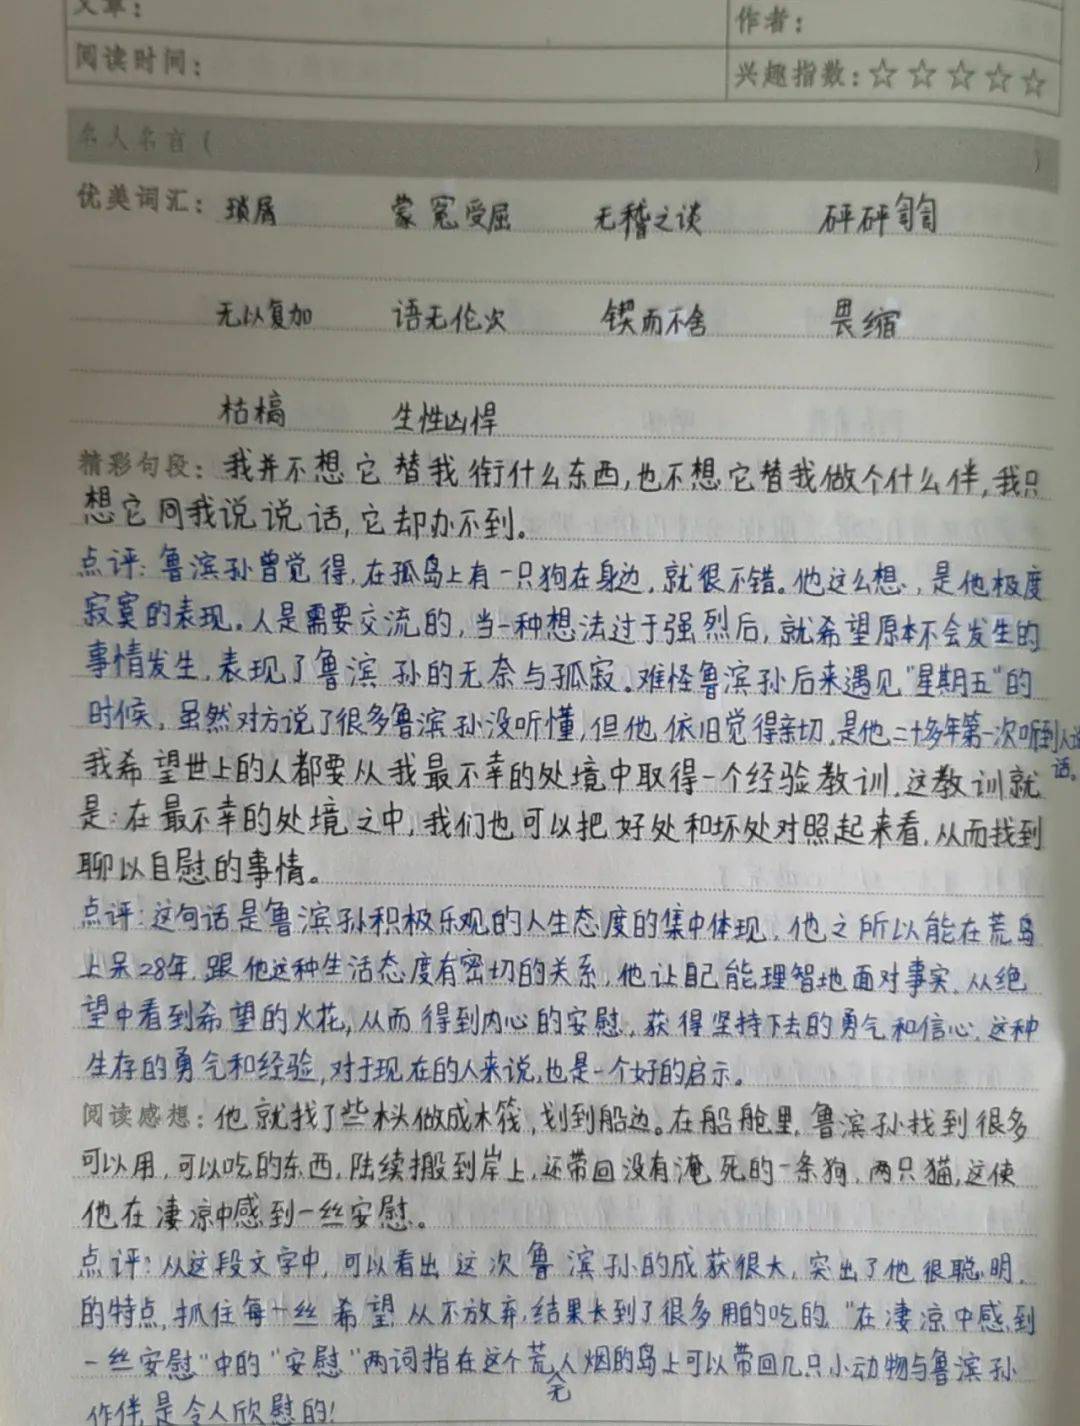 文章：
作者：
阅读时间：
兴趣指数：☆☆☆☆☆
名人名言（ ）
优美词汇：琐屑 蒙冤受屈 无稽之谈 砰砰訇訇
无以复加 语无伦次 锲而不舍 畏缩
枯槁 生性凶悍
精彩句段：我并不想它替我衔什么东西,也不想它替我做个什么伴,我只
想它同我说说话,它却办不到。
点评：鲁滨孙曾觉得,在孤岛上有一只狗在身边,就很不错。他这么想,是他极度
寂寞的表现。人是需要交流的,当一种想法过于强烈后,就希望原本不会发生的
事情发生,表现了鲁滨孙的无奈与孤寂。难怪鲁滨孙后来遇见"星期五"的
时候,虽然对方说了很多鲁滨孙没听懂,但他依旧觉得亲切,是他二十多年第一次听到人说
话。
我希望世上的人都要从我最不幸的处境中取得一个经验教训.这教训就
是:在最不幸的处境之中,我们也可以把好处和坏处对照起来看,从而找到
聊以自慰的事情。
点评:这句话是鲁滨孙积极乐观的人生态度的集中体现,他之所以能在荒岛
上呆28年,跟他这种生活态度有密切的关系,他让自己能理智地面对事实,从绝
望中看到希望的火花,从而得到内心的安慰,获得坚持下去的勇气和信心,这种
生存的勇气和经验,对于现在的人来说,也是一个好的启示。
阅读感想：他就找了些木头做成木筏,划到船边。在船舱里,鲁滨孙找到很多
可以用,可以吃的东西,陆续搬到岸上,还带回没有淹死的一条狗,两只猫,这使
他在凄凉中感到一丝安慰。
点评:从这段文字中,可以看出这次鲁滨孙的成获很大,突出了他很聪明,
的特点,抓住每一丝希望从不放弃,结果长到了很多用的吃的,"在凄凉中感到
一丝安慰"中的"安慰"两词指在这个荒无人烟的岛上可以带回几只小动物与鲁滨孙
作伴,是令人欣慰的!